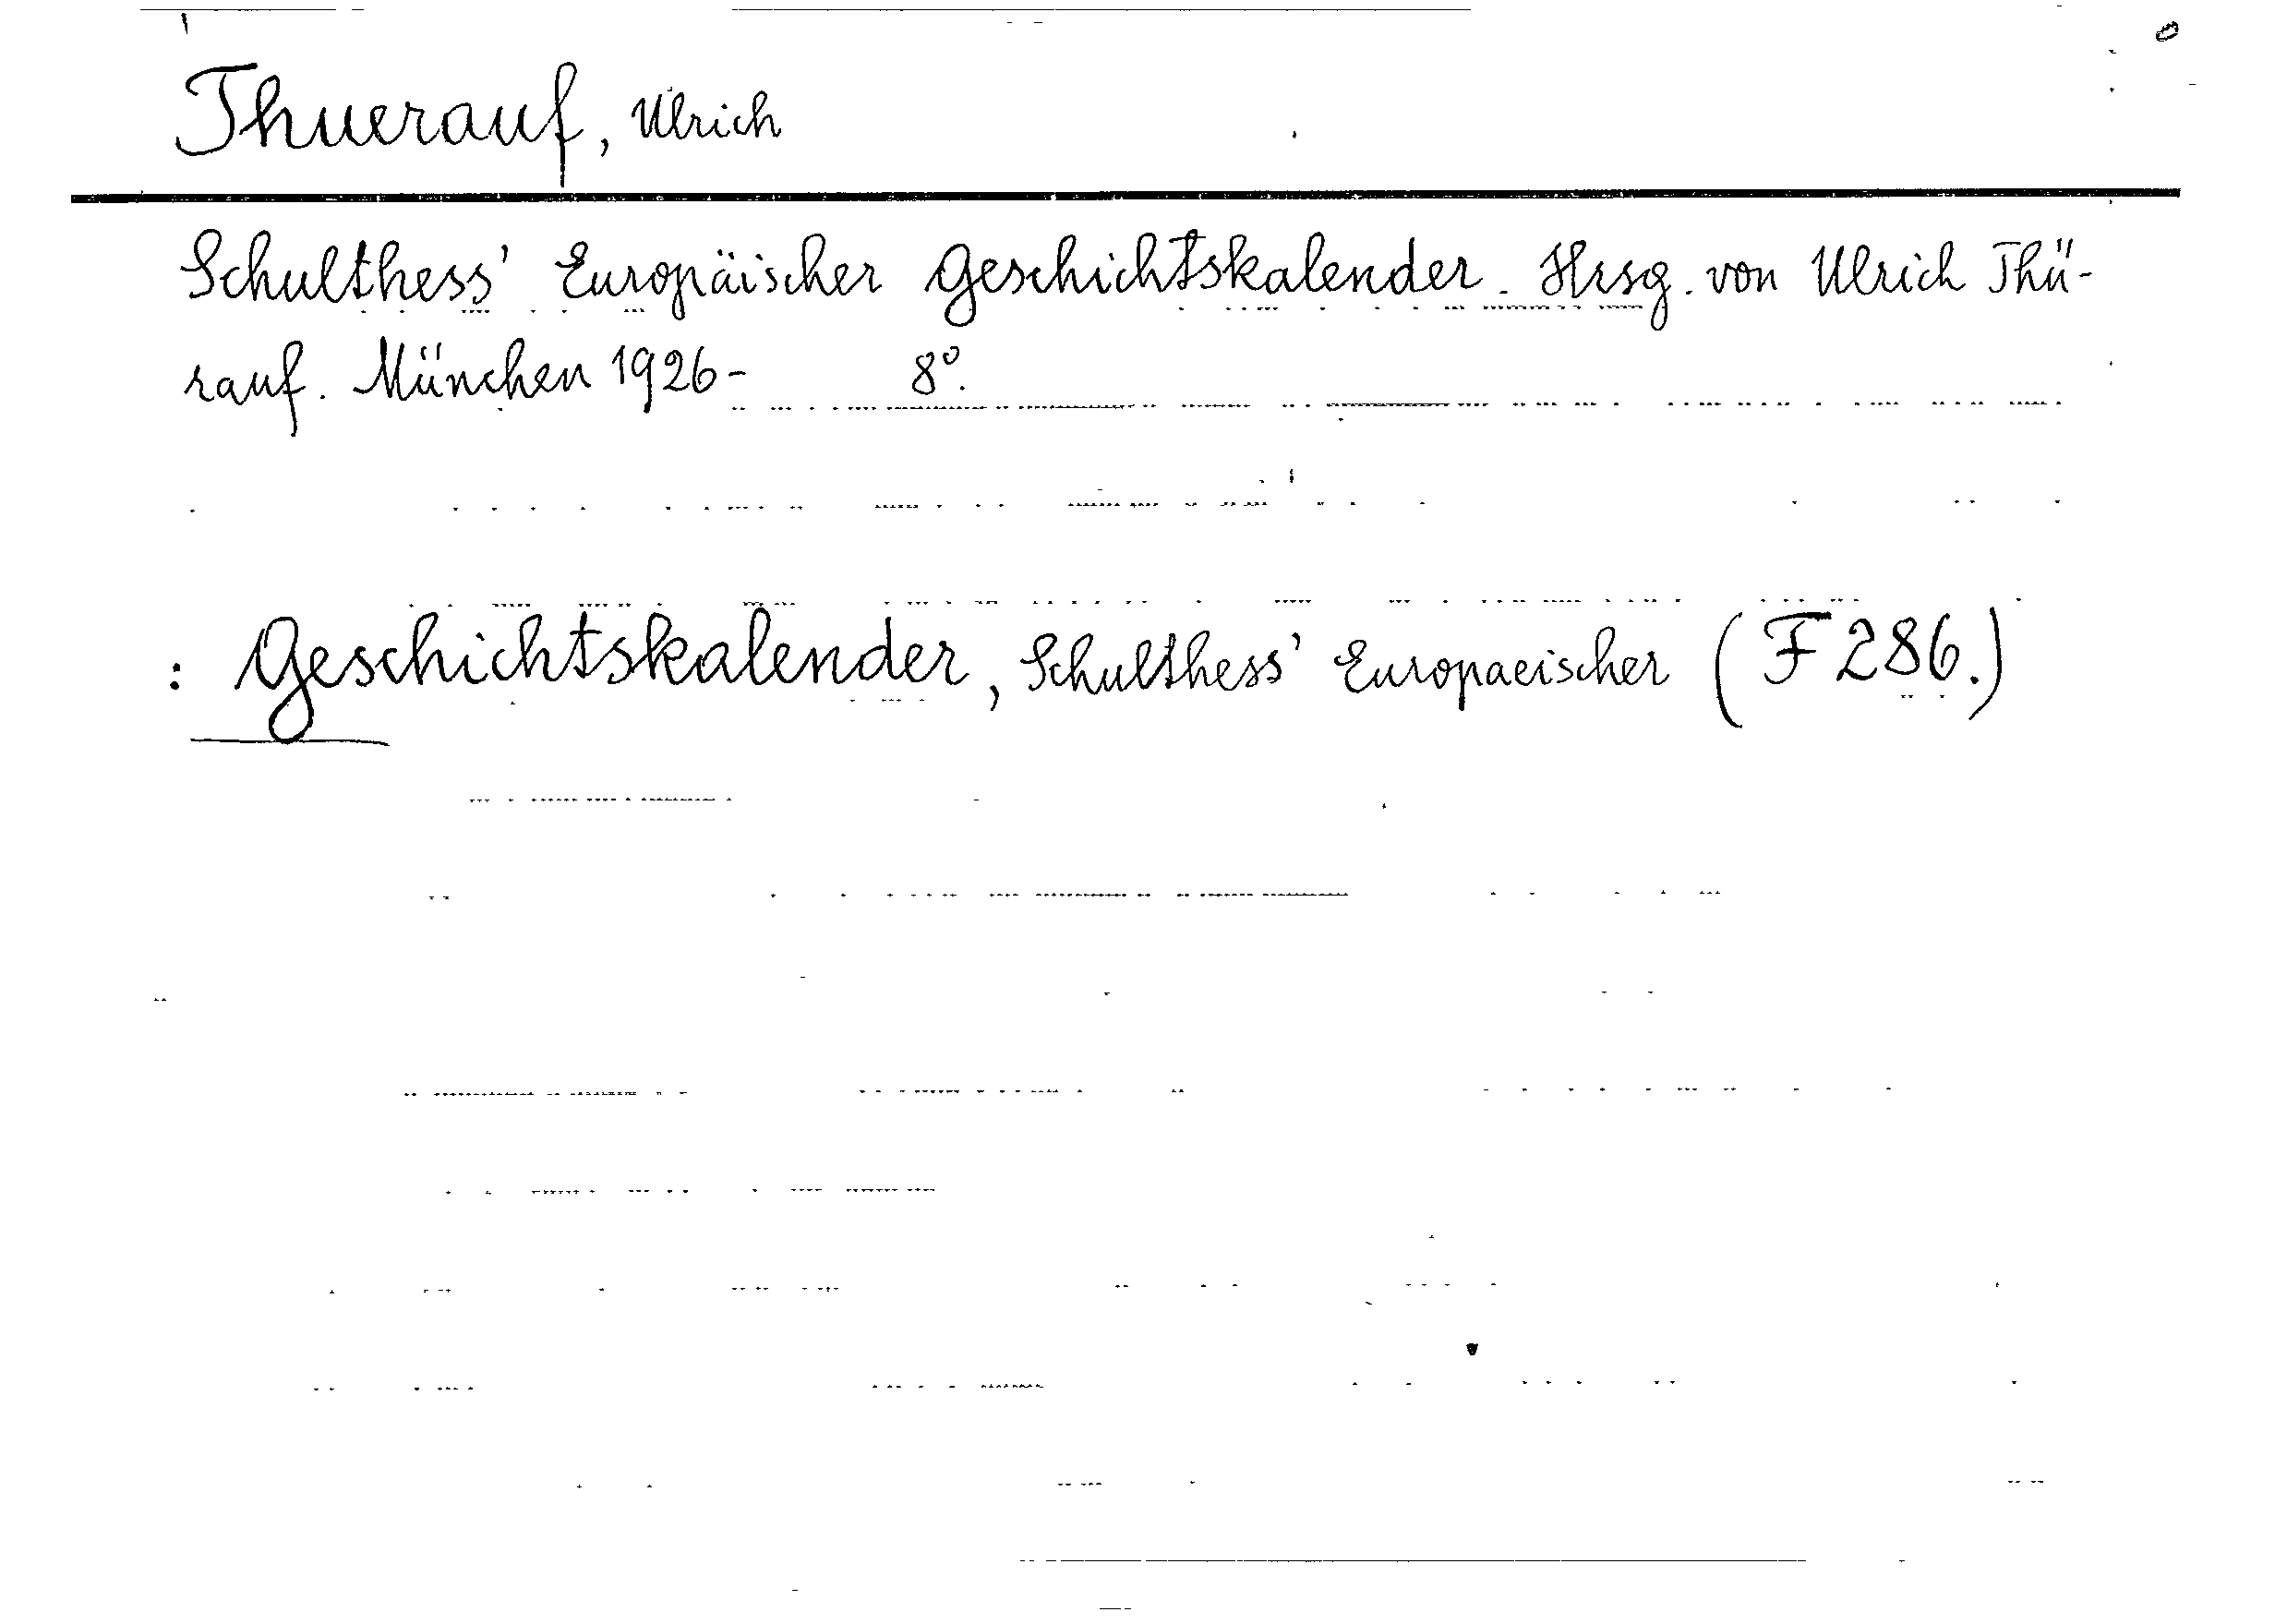 Thuerauf, Ulrich
Schulthess' Europäischer Geschichtskalender. Hrsg. von Ulrich Thü-
rauf. München 1926- 8°.
: Geschichtskalender, Schulthess' Europaeischer (F 286.)